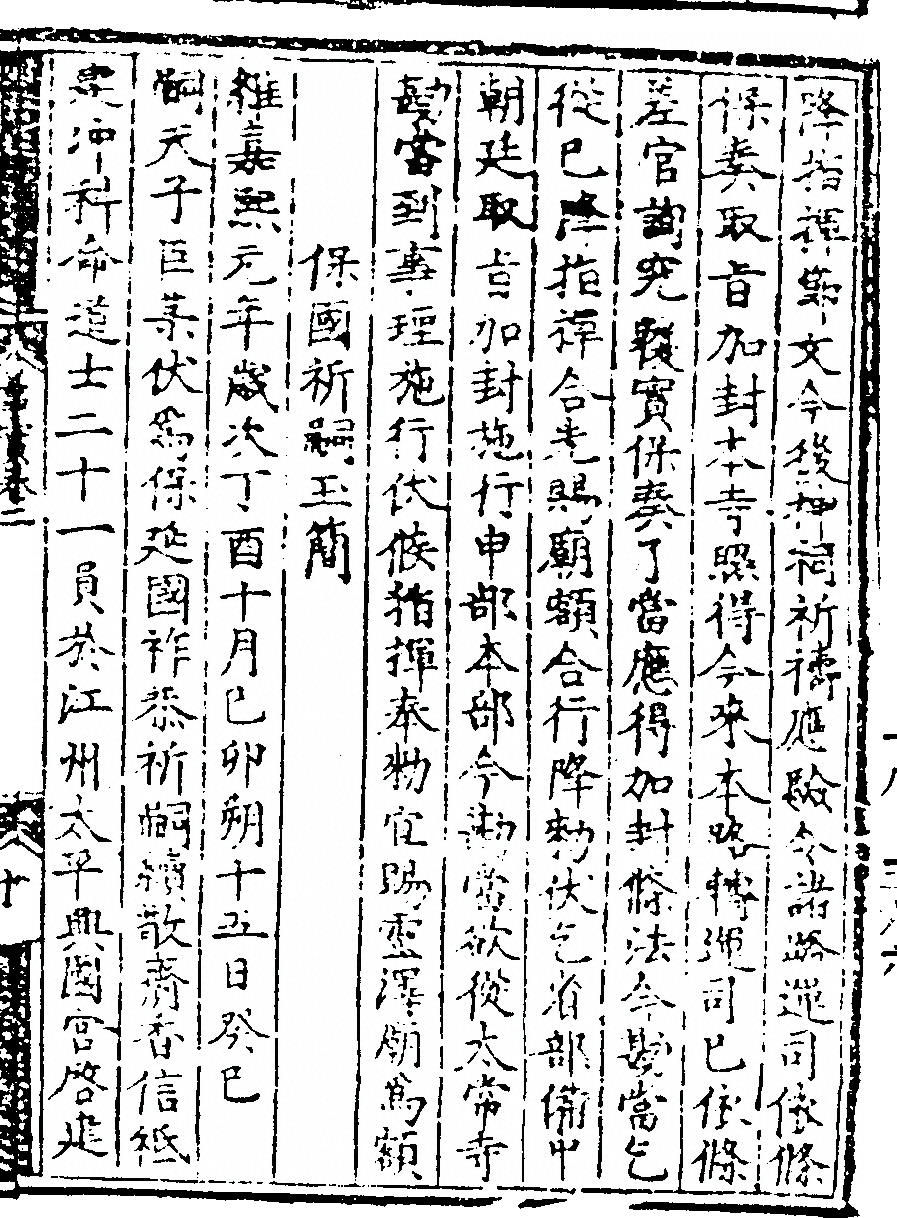 降指揮節文今後神祠祈禱應驗令諸路運司依條
保奏取旨加封本寺照得今來本路轉運司已依條
差官詢究覈實保奏了當應得加封條法今勘當乞
從已降指揮合先賜廟額合行降勑伏乞省部備申
朝廷取旨加封施行申部本部今勘當欲從太常寺
勘當到事理施行伏候指揮奉勑宜賜靈澤廟爲額
保國祈嗣玉簡
維嘉熙元年歲次丁酉十月己卯朔十五日癸巳
嗣天子臣某伏爲保延國祚恭祈嗣續敬齋香信祗
建沖科命道士二十一員於江州太平興國宮啓建
卷二
十